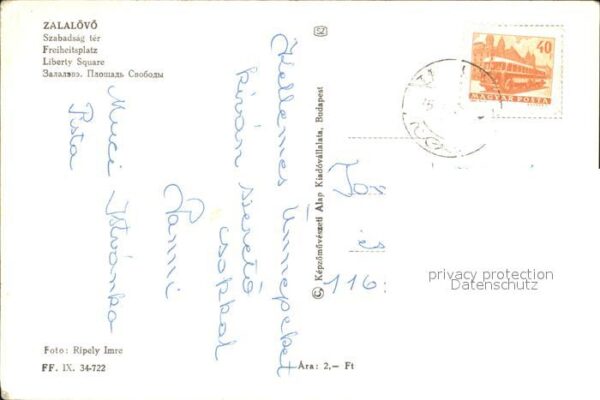 ZALALÖVŐ
Szabadság tér
Freiheitsplatz
Liberty Square
Залалвэ. Площадь Свободы
Kellemes Ünnepeket
kíván szerető
csokkal
Panni
Muci Istvánka
Pista
© Képzőművészeti Alap Kiadóvállalata, Budapest
40
MAGYAR POSTA
116.
privacy protection
Datenschutz
Foto: Ripely Imre
FF. IX. 34-722
Ára: 2,— Ft